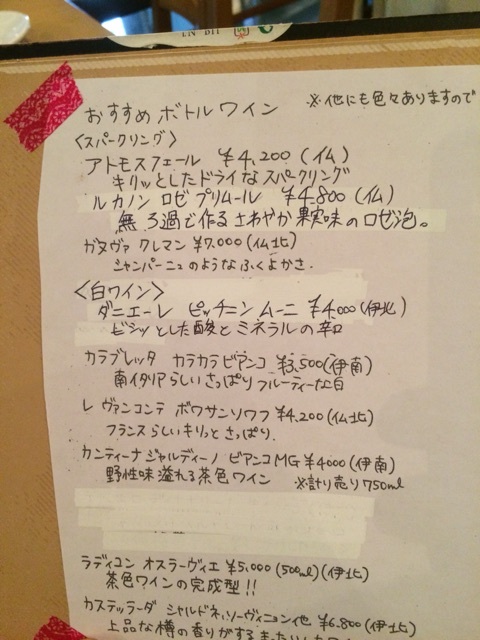 おすすめボトルワイン ※他にも色々ありますので
〈スパークリング〉
アトモスフェール ¥4,200（仏）
キリッとしたドライなスパークリング
ルカノン ロゼ プリムール ¥4,800（仏）
無ろ過で作るさわやか果実味のロゼ泡。
ガヌヴァ クレマン ¥7,000（仏北）
シャンパーニュのようなふくよかさ.
〈白ワイン〉
ダニエーレ ピッチニン ムーニ ¥4,000（伊北）
ビシッとした酸とミネラルの辛口
カラブレッタ カラカラビアンコ ¥3,500（伊南）
南イタリアらしいさっぱりフルーティーな白
レ ヴァンコンテ ボワサンソワフ ¥4,200（仏北）
フランスらしいキリっと さっぱり.
カンティーナ ジャルディーノ ビアンコMG ¥4000（伊南）
野性味溢れる茶色ワイン ※計り売り750ml
ラディコン オスラーヴィエ ¥5,000（500ml）（伊北）
茶色ワインの完成型!!
カステッラーダ シャルドネ,ソーヴィニョン他 ¥6,800（伊北）
上品な樽の香りがする